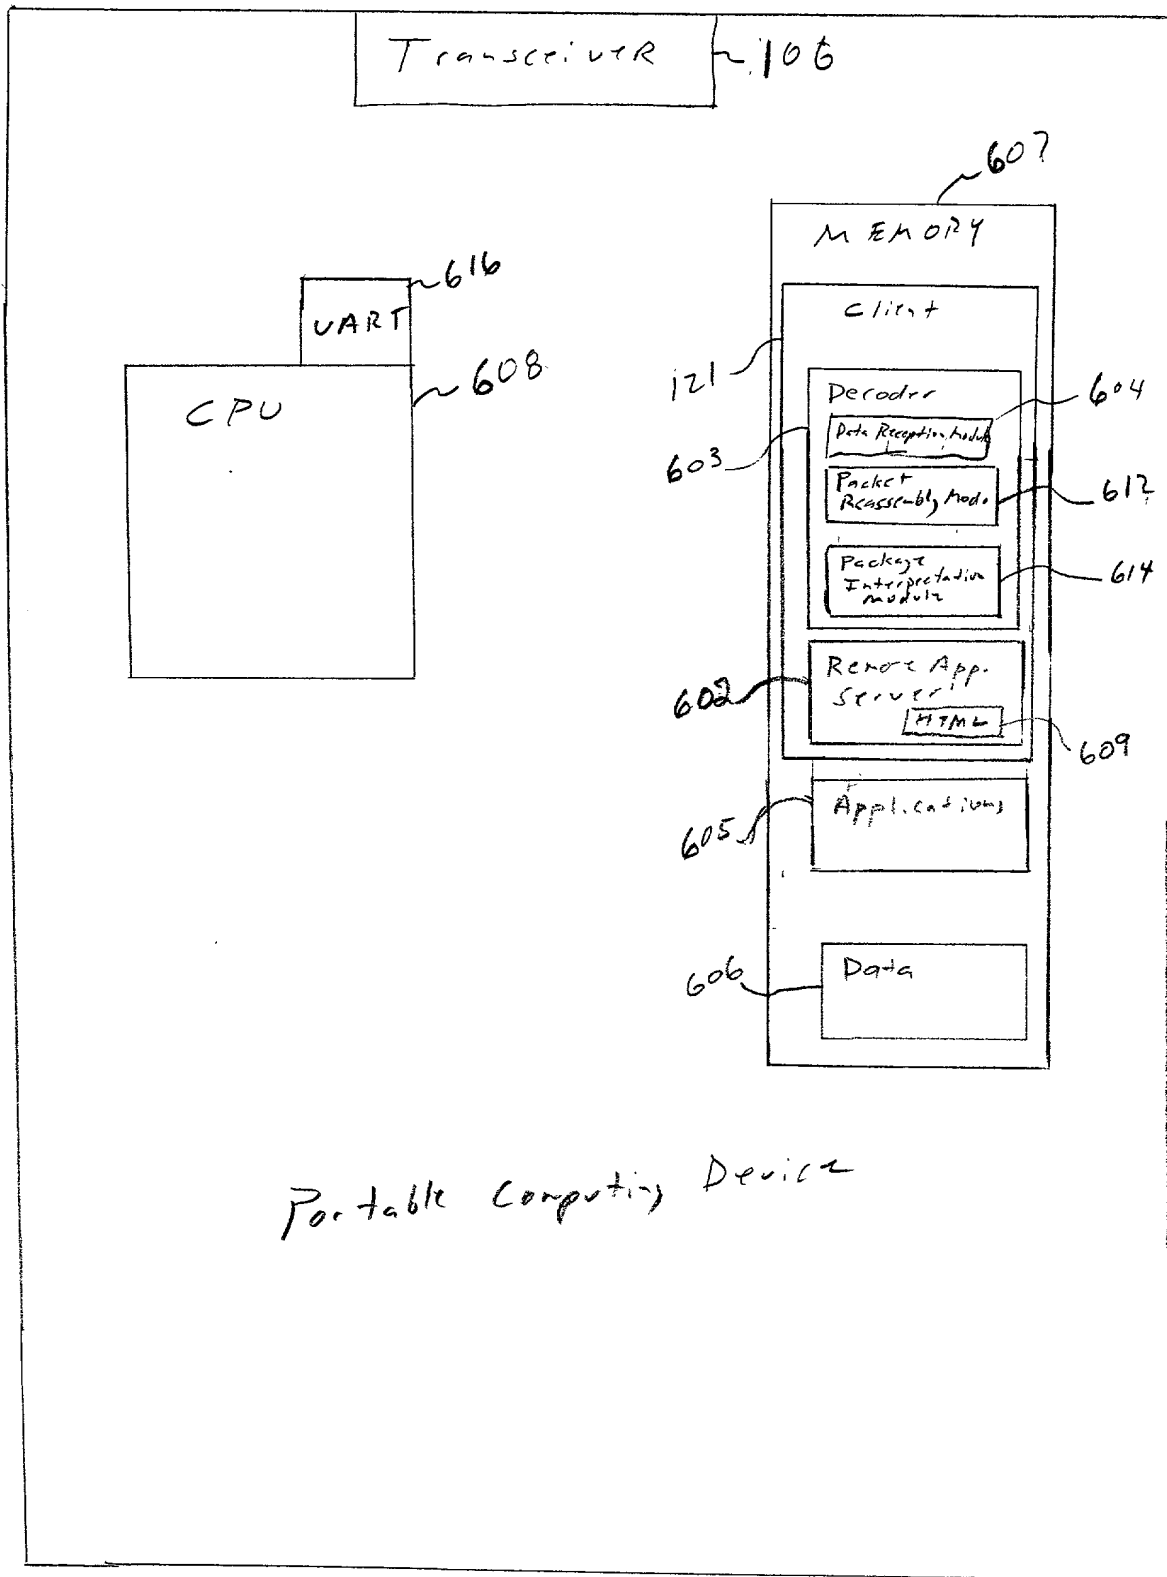 TransceiveR 106
607
MEMORY
616
UART
Client
608
CPU
121
Decoder
604
Data Reception Module
603
Packet
Reassembly Modu
612
Package
Interpretation
module
614
Remote App.
Server
602
HTML
609
Applications
605
Data
606
Portable Computing Device